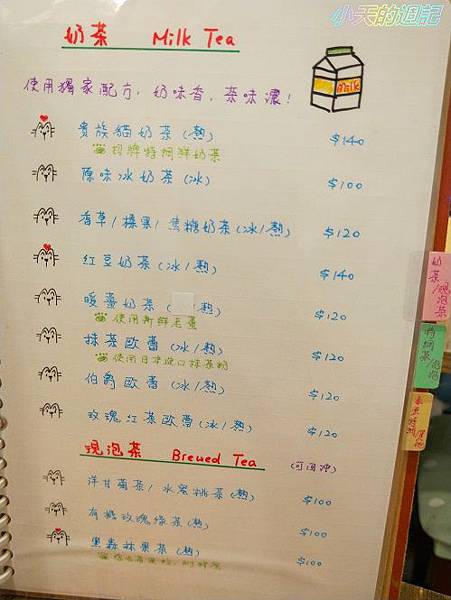 小天的週記
奶茶 Milk Tea
Milk
使用獨家配方，奶味香，茶味濃！
貴族貓奶茶（熱） $140
招牌特調鮮奶茶
原味冰奶茶（冰） $100
香草/榛果/焦糖奶茶（冰/熱） $120
紅豆奶茶（冰/熱） $140
暖薑奶茶（熱） $120
使用新鮮老薑
抹茶歐蕾（冰/熱） $120
使用日本進口抹茶粉
伯爵歐蕾（冰/熱） $120
玫瑰紅茶歐蕾（冰/熱） $120
現泡茶 Brewed Tea （可回沖）
洋甘菊茶/水蜜桃茶（熱） $100
有機玫瑰綠茶（熱） $100
黑森林果茶（熱） $100
奶茶/現泡茶